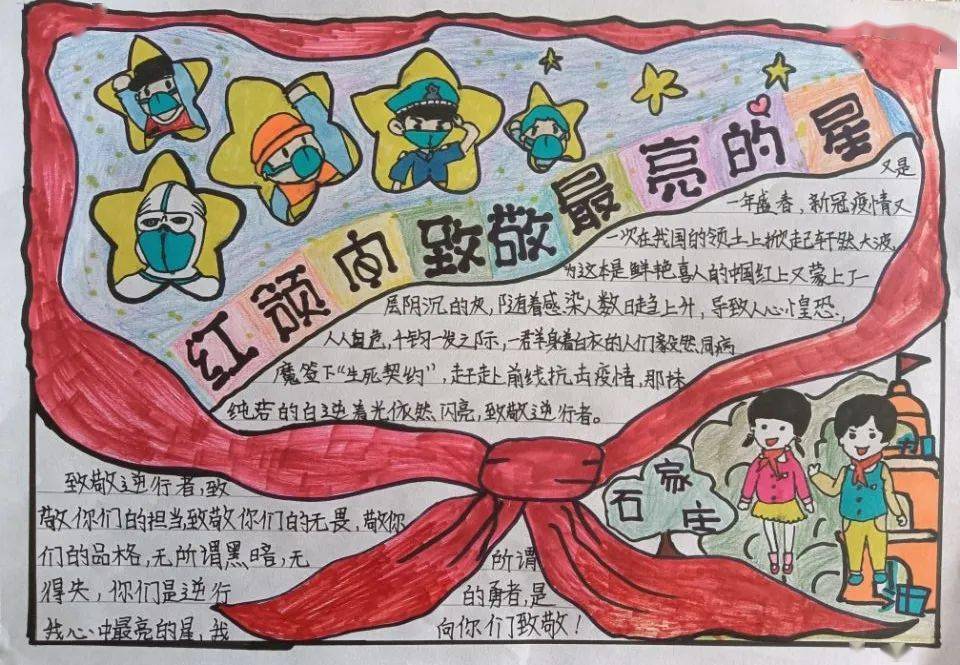 红领内致敬最亮的星
又是
一年盛春，新冠疫情又
一次在我国的领土上掀起轩然大波，
为这本是鲜艳喜人的中国红上又蒙上了一
层阴沉的灰，随着感染人数日趋上升，导致人心惶恐，
人人自危，千钧一发之际，一群羊身着白衣的人们毅然同病
魔签下“生死契约”，赶赴前线抗击疫情，那抹
纯若的白逆着光依然闪亮，致敬逆行者。
石家庄
致敬逆行者，致
敬你们的担当，致敬你们的无畏，敬你
们的品格，无所谓黑暗，无所谓
得失，你们是逆行的勇者，是
我心中最亮的星，我向你们致敬！